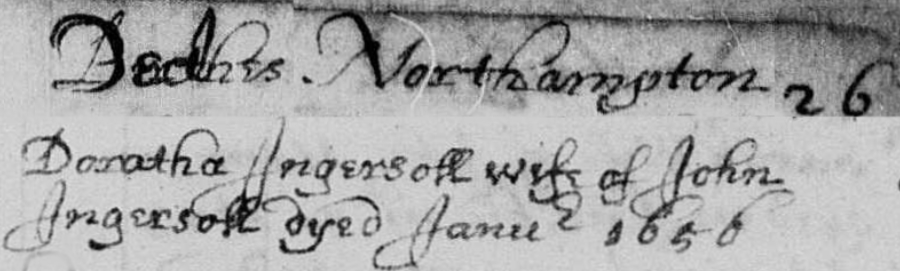 Deathes. Northampton 26
Doratha Ingersoll wife of John
Ingersoll dyed Janu^e 1656